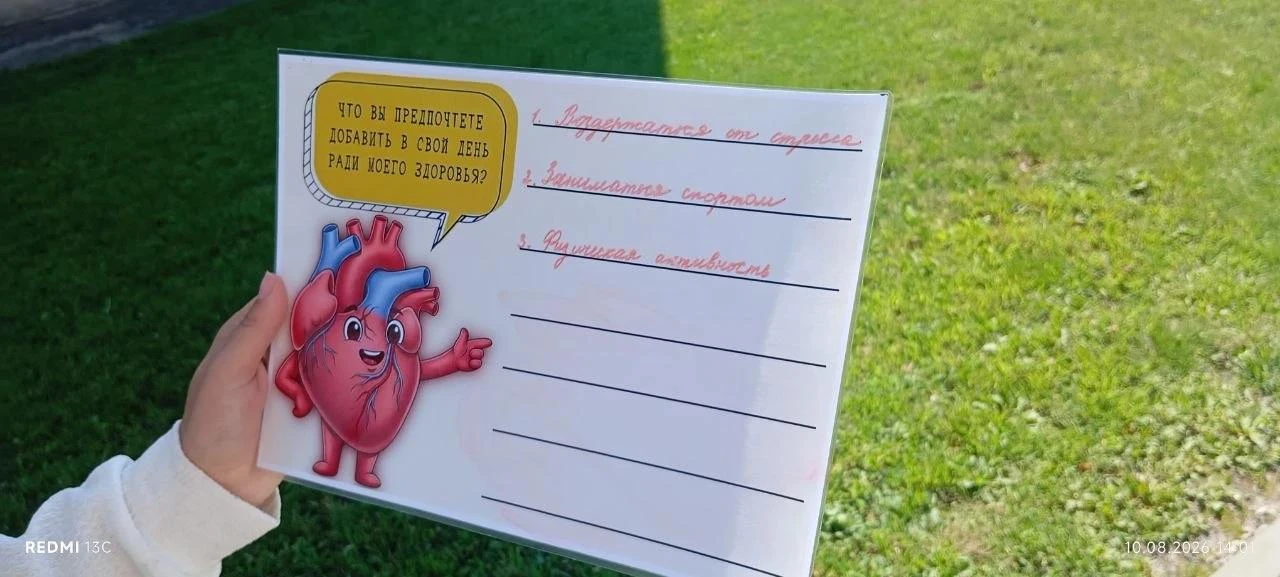 ЧТО ВЫ ПРЕДПОЧТЕТЕ
ДОБАВИТЬ В СВОЙ ДЕНЬ
РАДИ МОЕГО ЗДОРОВЬЯ?
1. Воздержаться от стресса
2. Заниматься спортом
3. Физическая активность
REDMI 13C
10.08.2026 14:01